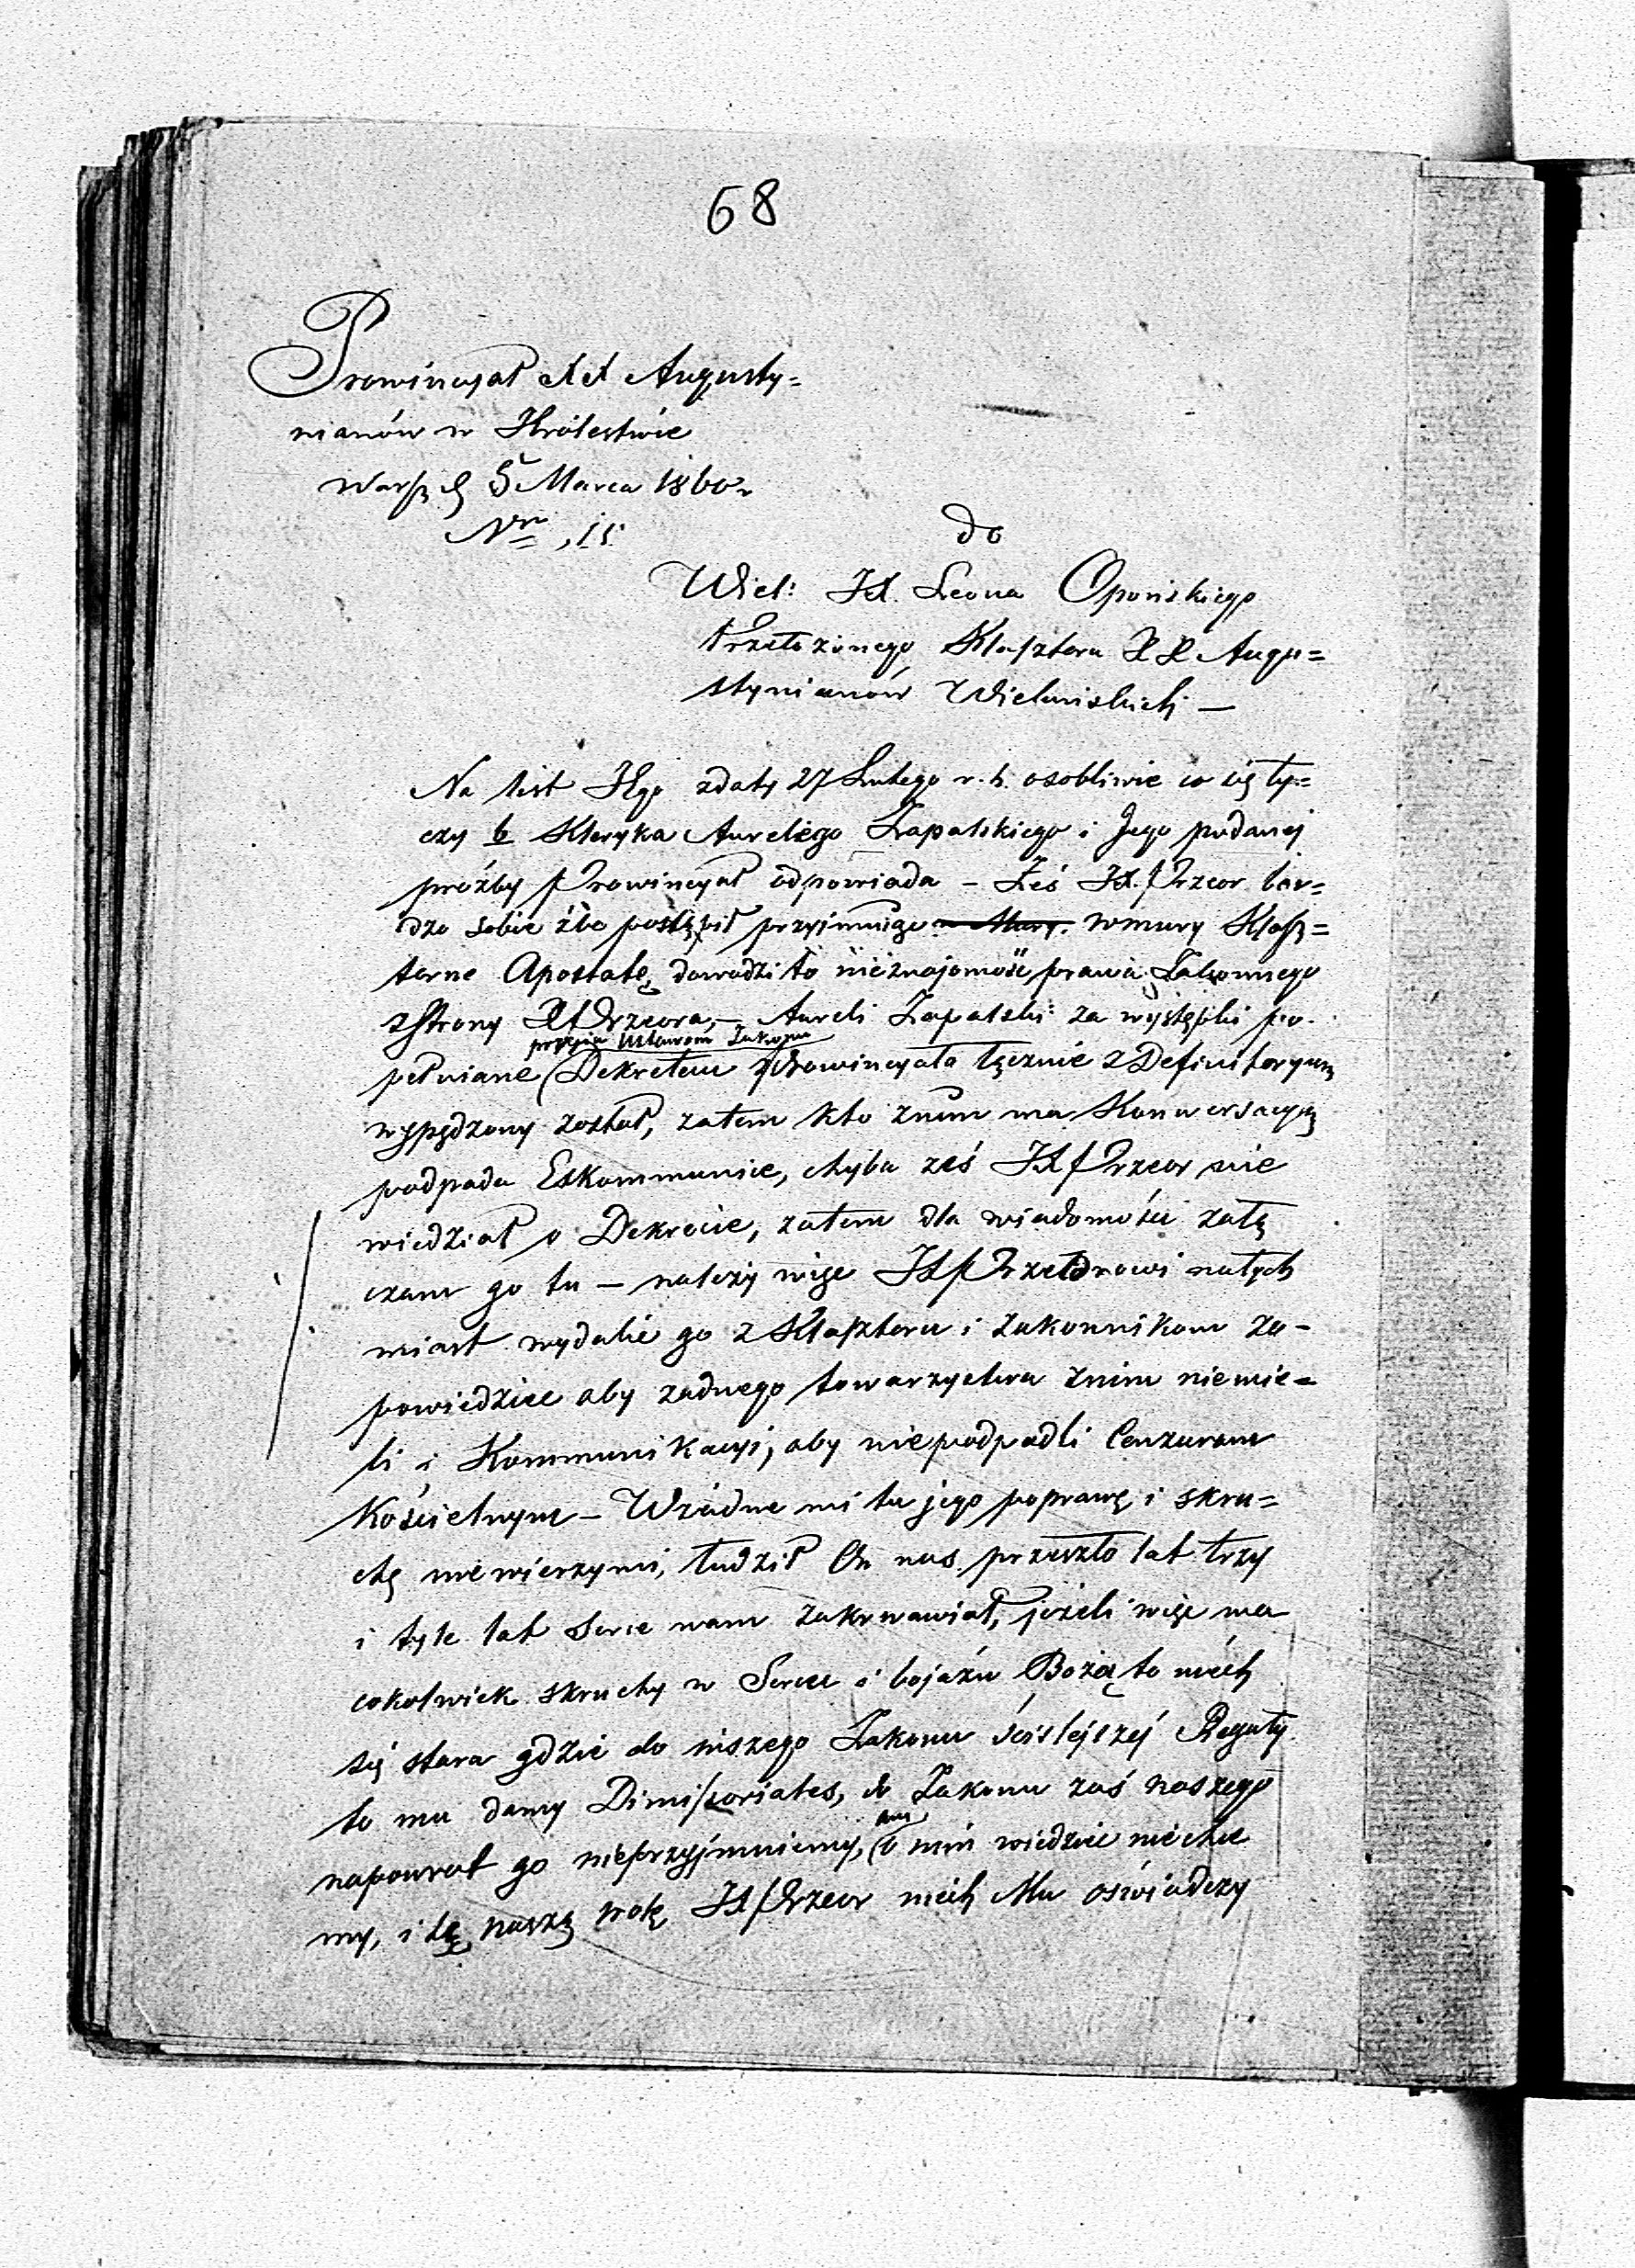 68
Prowincyał XX Augusty=
nianów w Królestwie
Warsz d 5 Marca 1860 r
Nr 15
do
Wiel: JX. Leona Opońskiego
Przełożonego Klasztoru XX Augu=
stynianów Wieluńskich —
Na list JXgo zdaty 27 Lutego r. b. osobliwie co się ty=
czy b Kleryka Aurelego Zapalskiego i Jego podanej
proźby Prowincyał odpowiada – Żeś JX. Przeor bar=
dzo sobie źle postąpił przyjmując w Mury wmury Klasz=
torne Apostatę, dowodzi to nieznajomość prawa Zakonnego
zstrony JX Przeora, – Aureli Zapalski za występki po
przeciw Ustawom Zakonu
pełniane (Dekretem Prowincyała łącznie z Definitoryum
wypędzony został, zatem kto znim ma Konwersacyą
podpada Exkommunice, chyba żeś JX Przeor nie
wiedział o Dekrecie, zatem dla wiadomości załą
czam go tu – należy więc JX Przeorowi natych
miast wydalić go z Klasztoru i zakonnikom za-
powiedzieć aby zadnego towarzystwa znim niemie=
li i Kommunikacyi, aby niepodpadli Cenzurom
Kościelnym – Wżadne mi tu jego poprawę i skru=
chę niewierzymi, łudził On nas przeszło lat trzy
i tyle lat Serce nam zakrwawiał, jeżeli więc ma
cokolwiek skruchy w Sercu i bojaźń Bożą to niech
się stara gdzie do inszego Zakonu ściślejszej Reguły
to mu damy Dimissoriales, do Zakonu zaś naszego
napowrot go nieprzyjmniemy, (ani o nim wiedzieć niechce
my, i tę naszą wolę JX Przeor niech Mu oświadczy